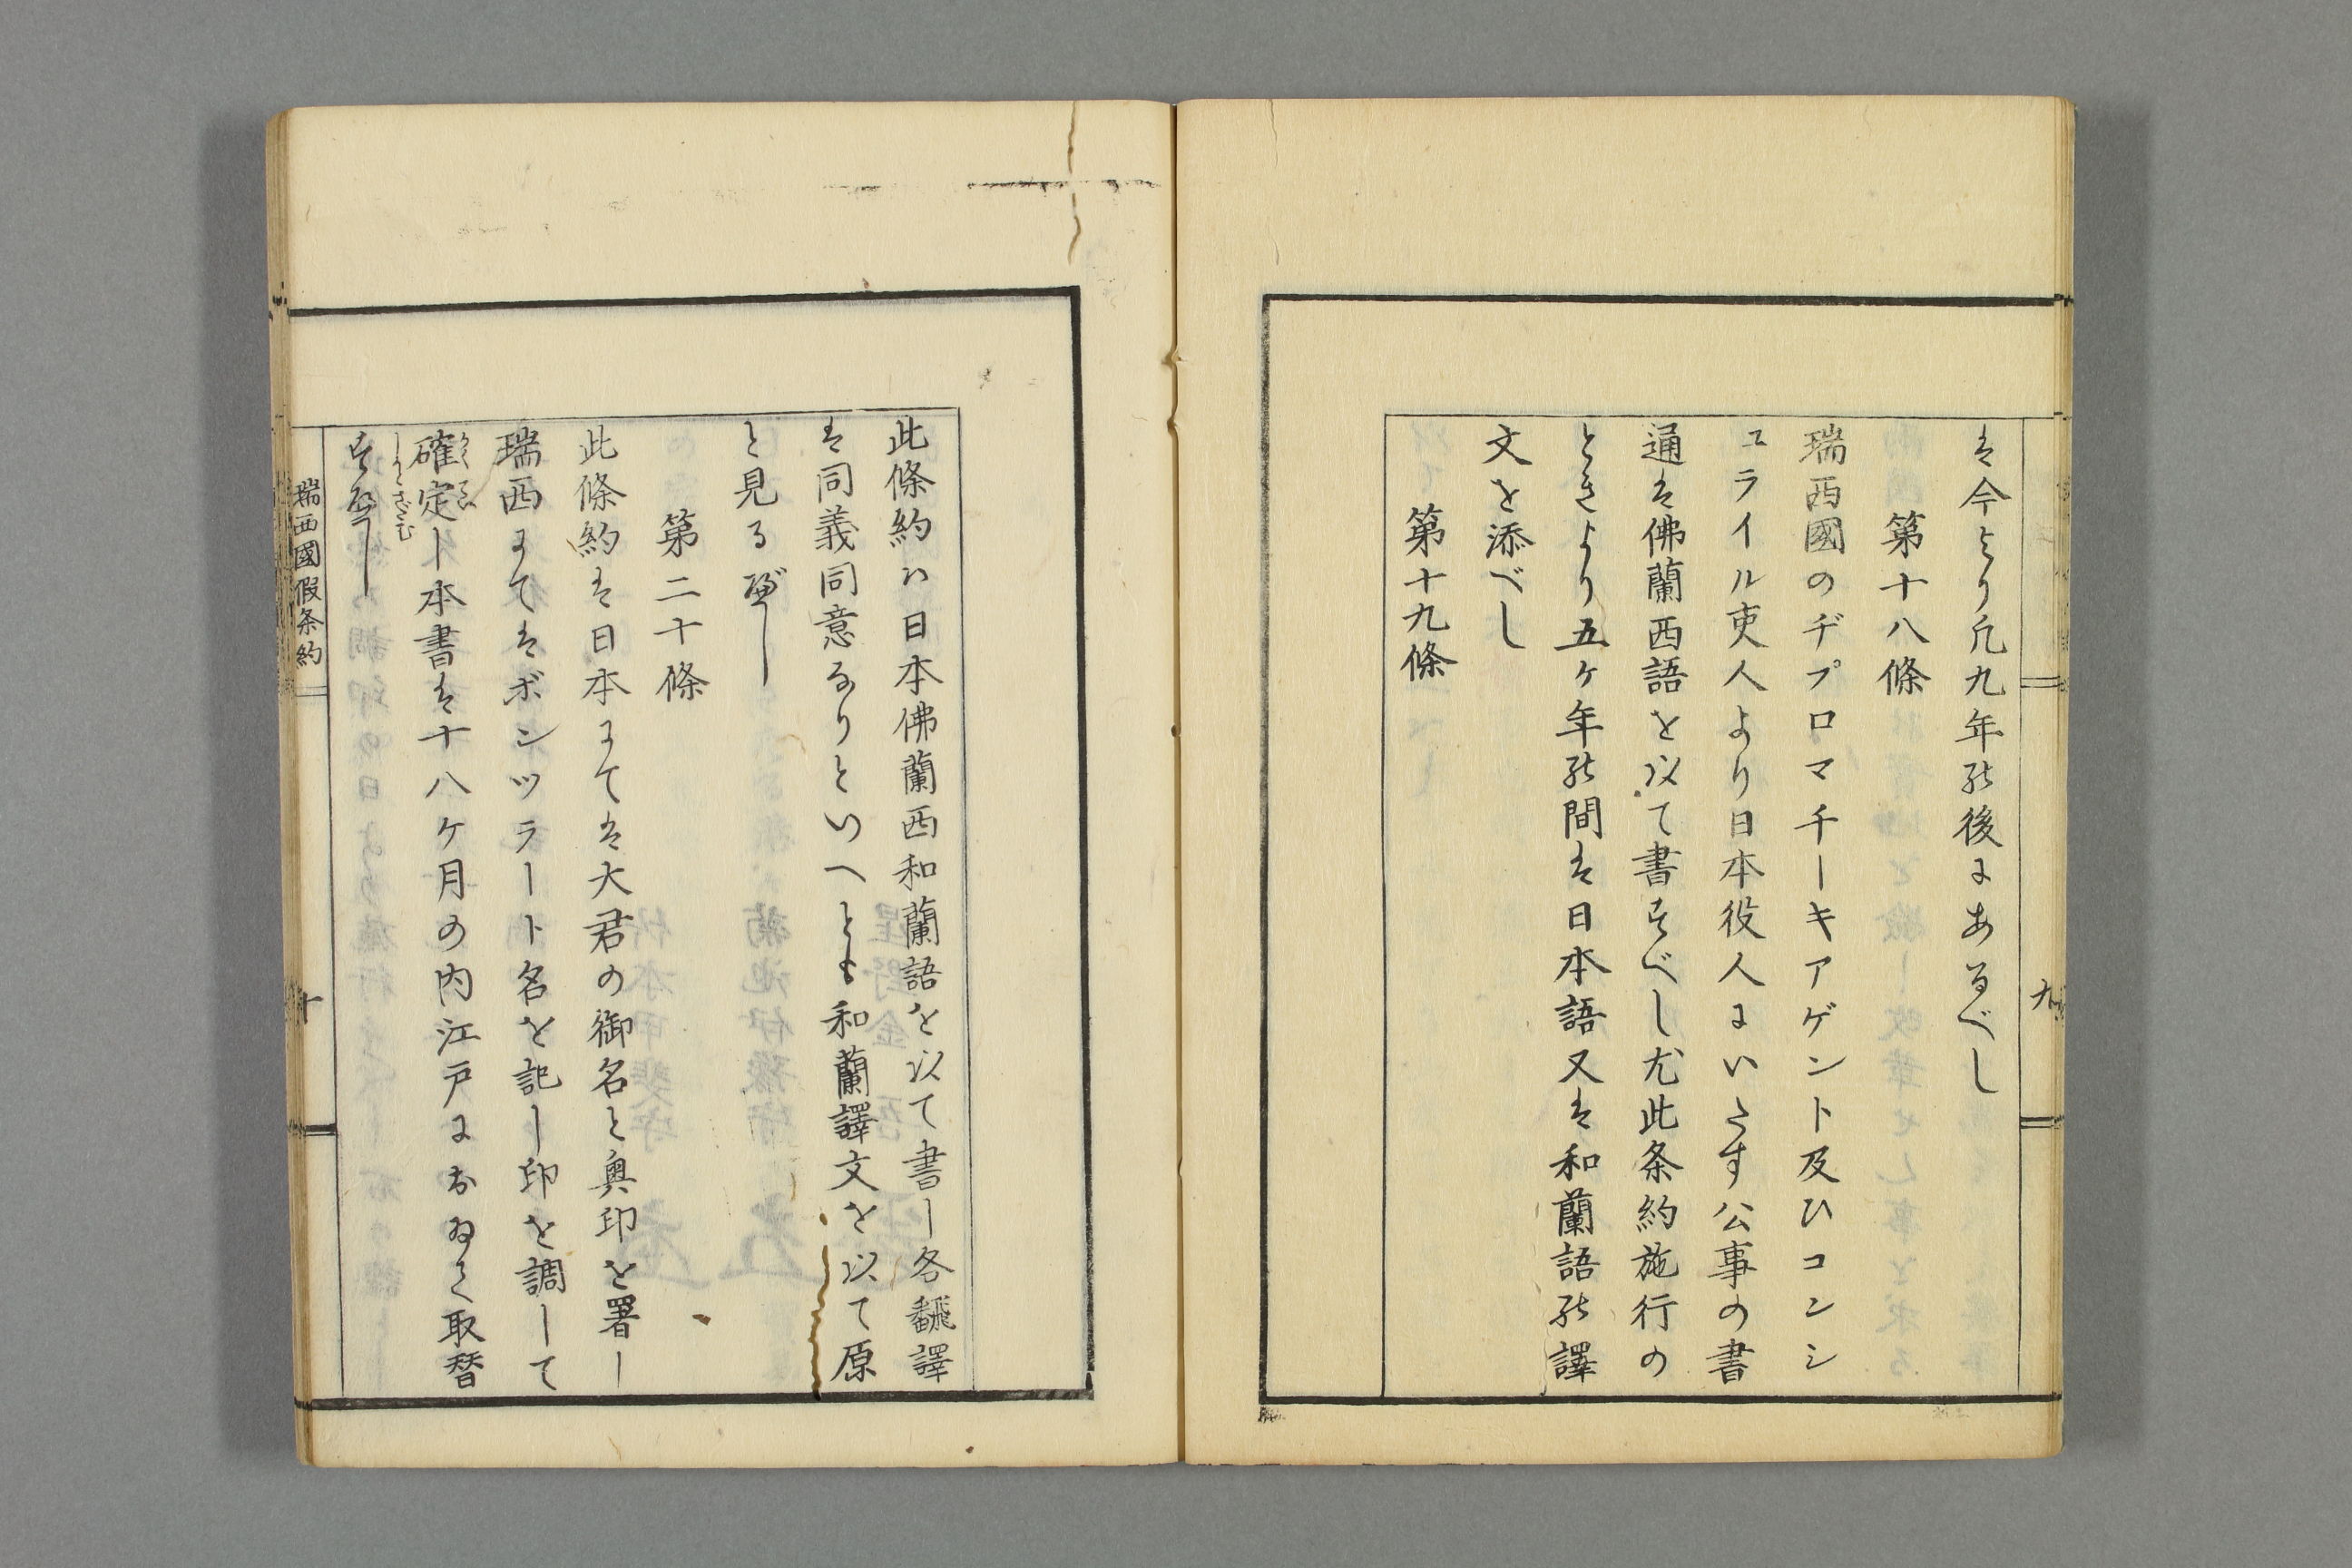 は今より凡九年の後にあるべし
第十八條
瑞西國のヂプロマチーキアゲント及ひコンシ
ュライル吏人より日本役人にいたす公事の書
通は佛蘭西語を以て書すべし尤此条約施行の
ときより五ケ年の間は日本語又は和蘭語の譯
文を添べし
第十九條
九
此條約ハ日本佛蘭西和蘭語を以て書し各飜譯
は同義同意なりといへとも和蘭譯文を以て原
と見るべし
第二十條
此條約は日本にては大君の御名と奥印を署し
瑞西にてはボンヅラート名を記し印を調して
確定し本書は十八ケ月の内江戸におゐて取替
すべし
瑞西國假条約
十